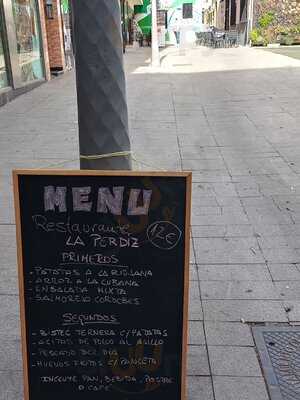 MENU
Restaurante
LA PERDIZ
12€
PRIMEROS
- PATATAS A LA RIOJANA
- ARROZ A LA CUBANA
- ENSALADA MIXTA
- SALMOREJO CORDOBES
SEGUNDOS
- BISTEC TERNERA C/PATATAS
- ALITAS DE POLLO AL AJILLO
- PESCADO DEL DIA
- HUEVOS FRITOS C/PANCETA
INCLUYE PAN, BEBIDA, POSTRE
O CAFE